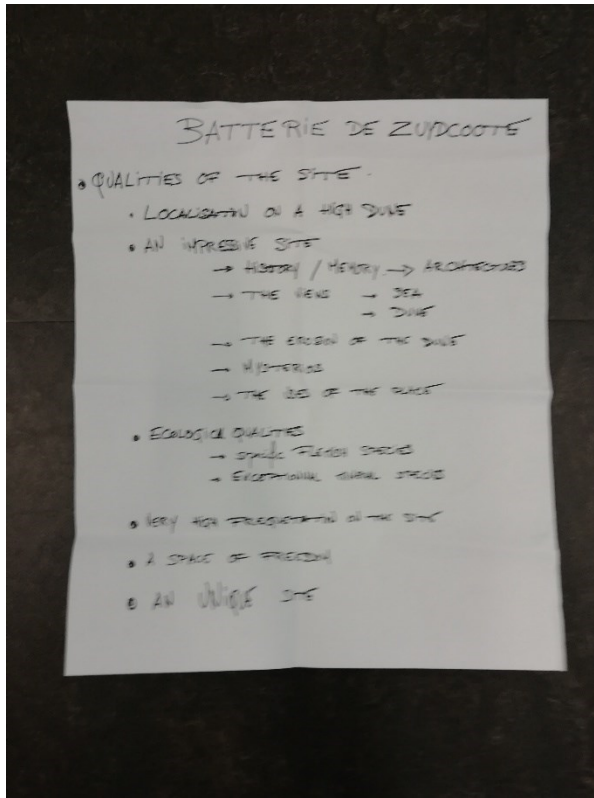 BATTERIE DE ZUYDCOOTE
• QUALITIES OF THE SITE.
• LOCALISATIN ON A HIGH DUNE
• AN IMPRESSIVE SITE
→ HISTORY / MEMORY → ARCHITECTURES
→ THE VIEWS → SEA
→ DUNE
→ THE EROSION OF THE DUNE
→ MYSTERIOUS
→ THE OF THE PLACE
• ECOLOGICAL QUALITIES
→ FLEMISH SPECIES
→ EXCEPTIONAL ANIMAL SPECIES
• VERY HIGH FREQUENTATION ON THE SITE
• A SPACE OF FREEDOM
• AN UNIQUE SITE